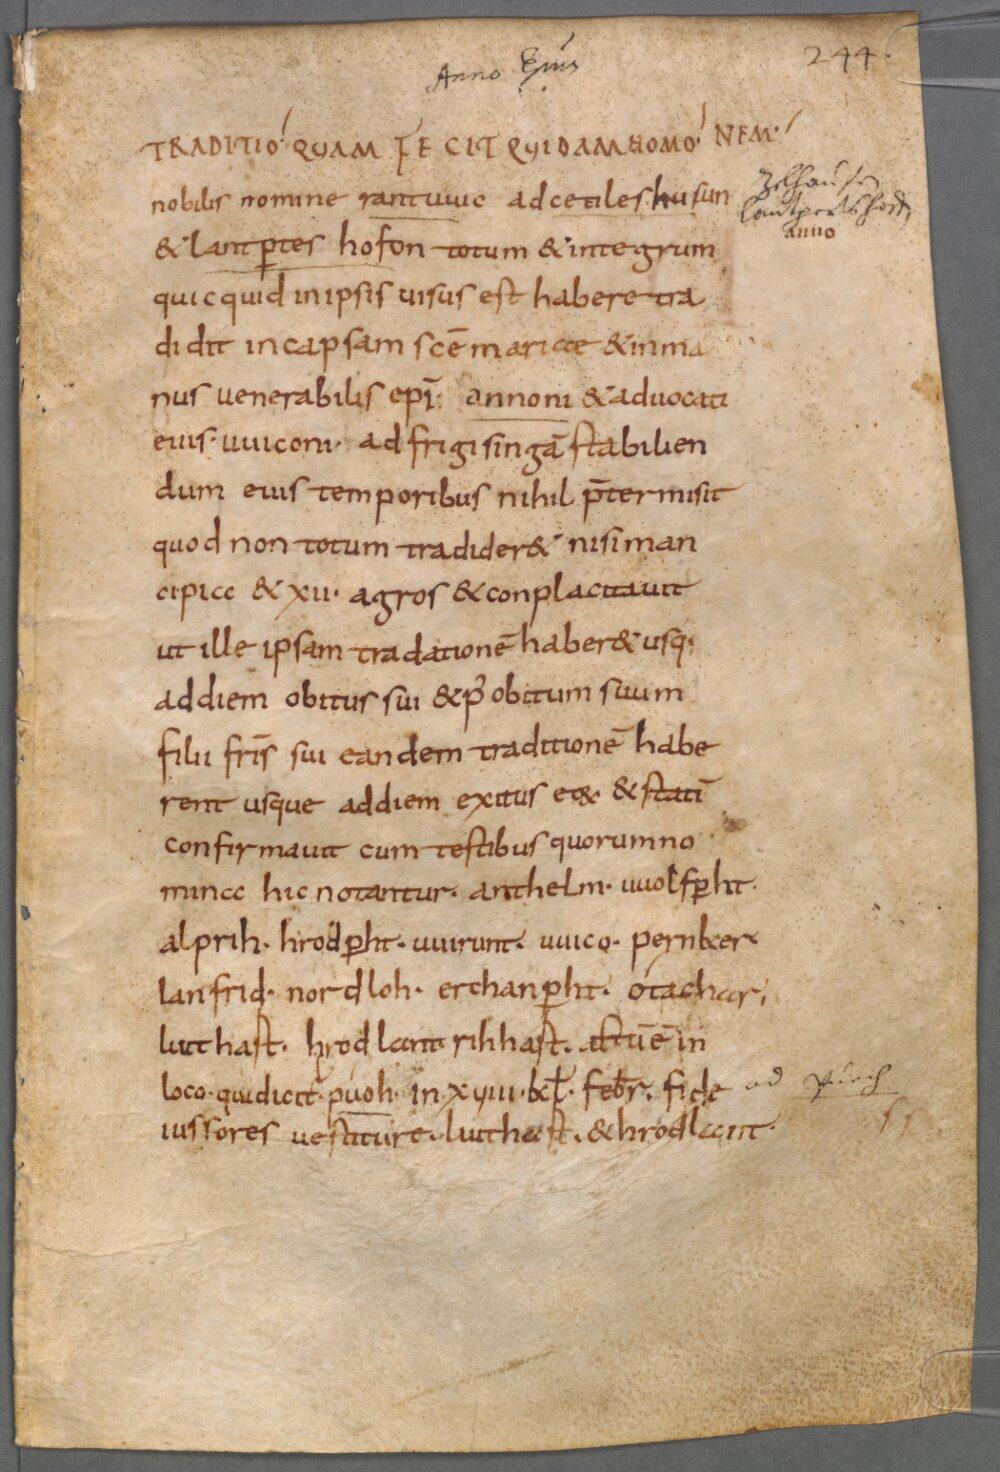 Anno Epūs
244.
TRADITIO QUAM FECIT QUIDAM HOMO NEM
nobilis nomine rantuuic ad cetileshusun
& lantptes hofon totum & integrum
quicquid in ipsis uisus est habere tra
didit in capsam scē mariae & in ma
nus uenerabilis epi. annoni & aduocati
eius. uuiconi. ad frigisingā stabilien
dum eius temporibus nihil p̄termisit
quod non totum tradider& nisi man
cipia & xii. agros & conplacitauit
ut ille ipsam tradationē haber& usq.
ad diem obitus sui & p̄ obitum suum
filii fr̄is sui eandem traditionē habe
rent usque ad diem exitus & statī
confirmauit cum testibus quorum no
mina hic notantur. anthelm. uuolfpht.
alprih. hrodpht. uuirunt. uuico. pernker
lanfrid. nordloh. erchanpht. otachar.
liuthast. hrodlant rihhast. actū ē in
loco. qui dicit puoh. in xuiii. kl. febr. fide
iussores uestiture. liuthast. & hrodlant.
Zelhausen
Lantpertshofen
anno
ad Puech